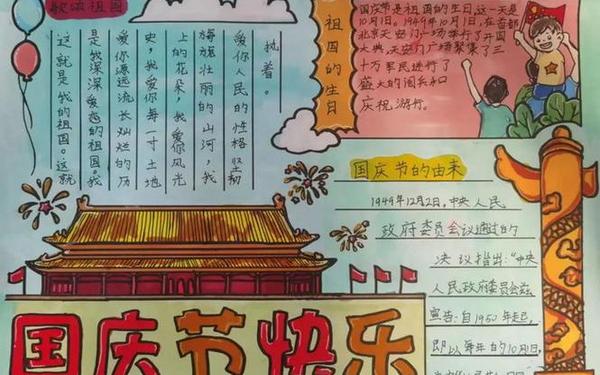 歌颂祖国
这就是我的祖国。这就
是我深深爱恋的祖国。我
爱你源远流长灿烂的历
史，我爱你每一寸土地
上的花朵，我爱你风光
旖旎壮丽的山河，我
爱你人民的性格坚韧
执着。
祖国的生日
国庆节是祖国的生日，这一天是
10月1日。1949年10月1日，在首都
北京天安门广场举行了开国
大典，天安门广场聚集了三
十万军民进行了
盛大的阅兵和
庆祝游行。
国庆节的由来
1949年12月2日，中央人民
政府委员会议通过的
决议指出：“中央
人民政府委员会兹
宣告：自1950年起，
即以每年的10月1日，
国庆节快乐